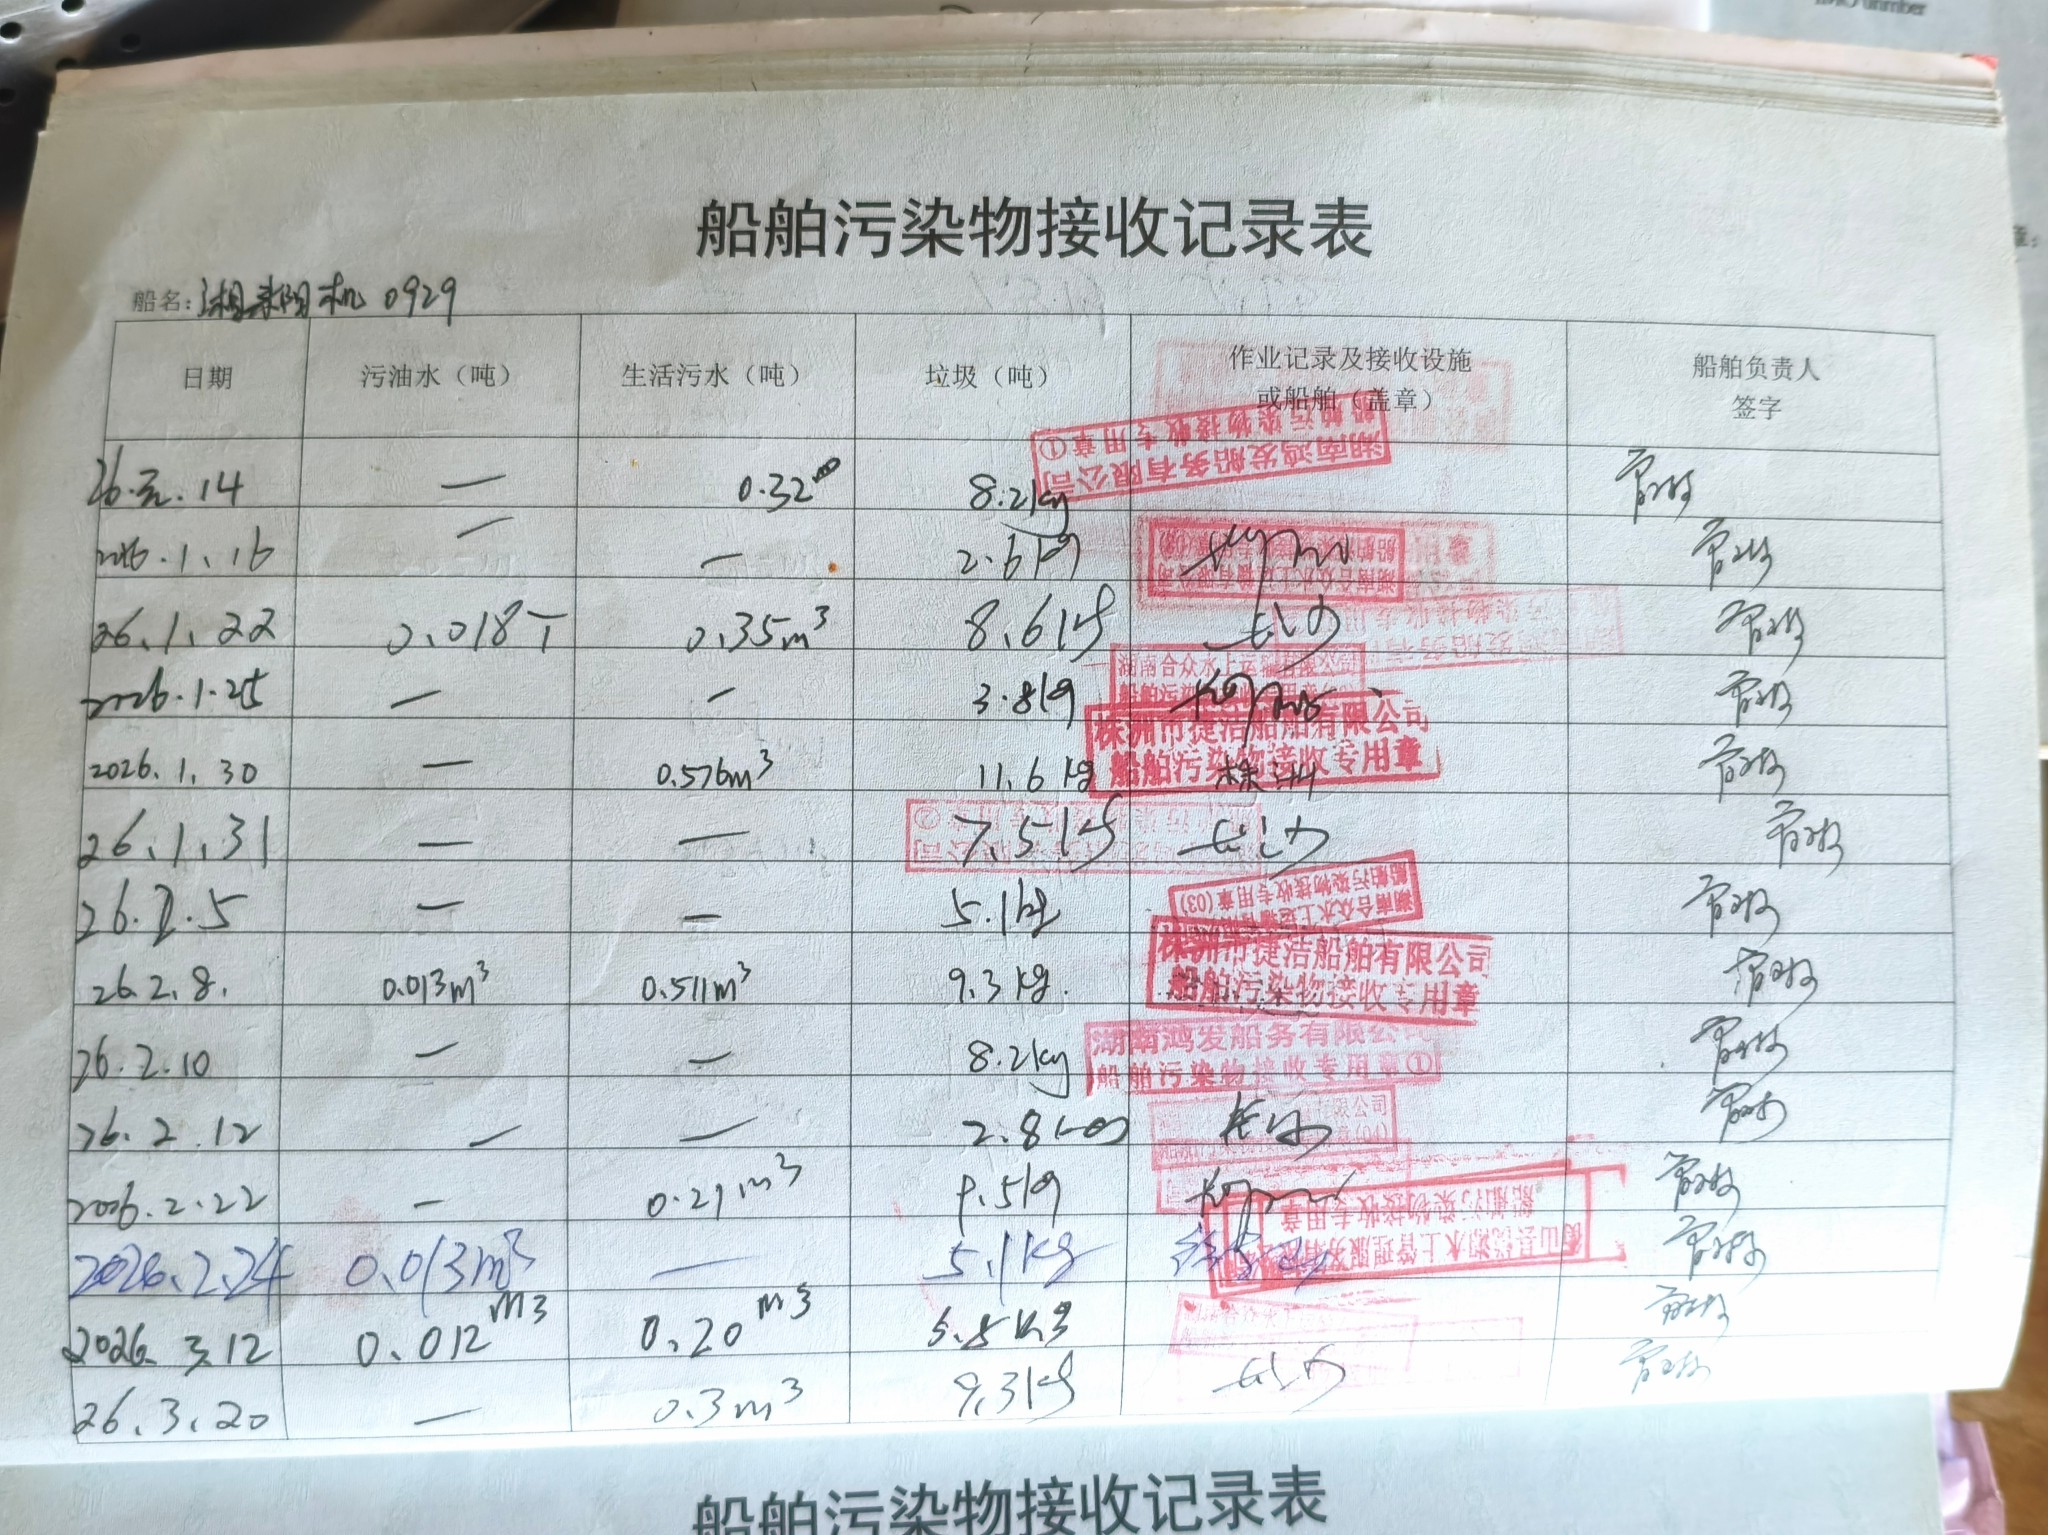 船舶污染物接收记录表
船名：湘耒阳机0929
日期 污油水（吨） 生活污水（吨） 垃圾（吨） 作业记录及接收设施或船舶（盖章） 船舶负责人签字
26.元.14 — 0.32 8.2kg 湖南鸿发船务有限公司 船舶污染物接收专用章①
2026.1.16 — — 2.6kg 湖南合众水上运输有限公司
26.1.22 0.018T 0.35m³ 8.6kg 长沙
2026.1.25 — — 3.8kg 湖南合众水上运输有限公司
2026.1.30 — 0.576m³ 11.6kg 株洲 株洲市捷洁船舶有限公司 船舶污染物接收专用章
26.1.31 — — 7.5kg 长沙
26.2.5 — — 5.1kg 湖南合众水上运输有限公司 船舶污染物接收专用章(03)
26.2.8. 0.013m³ 0.511m³ 9.3kg. 株洲市捷洁船舶有限公司 船舶污染物接收专用章
26.2.10 — — 8.2kg 湖南鸿发船务有限公司 船舶污染物接收专用章①
26.2.12 — — 2.8 长沙
2026.2.22 — 0.21m³ 9.5kg
2026.2.24 0.013m³ — 5.1kg 水上管理服务有限 船舶污染物接收专用章
2026.3.12 0.012m3 0.20m3 5.8Kg
26.3.20 — 0.3m³ 9.3kg 长沙
船舶污染物接收记录表